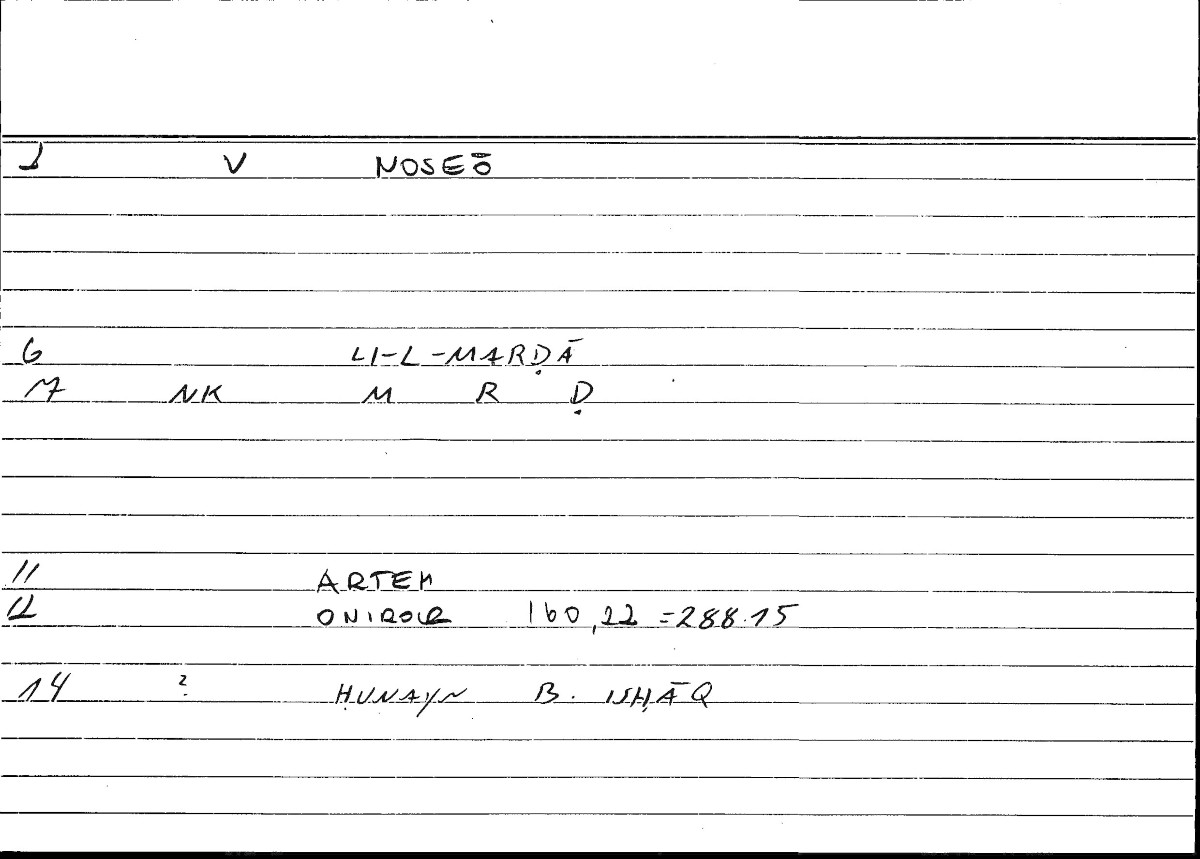 1 V NOSEŌ
6 LI-L-MARḌĀ
7 NK M R Ḍ
11 ARTEM
12 ONIROCR 160,22 =288.15
14 ? ḤUNAYN B. ISḤĀQ